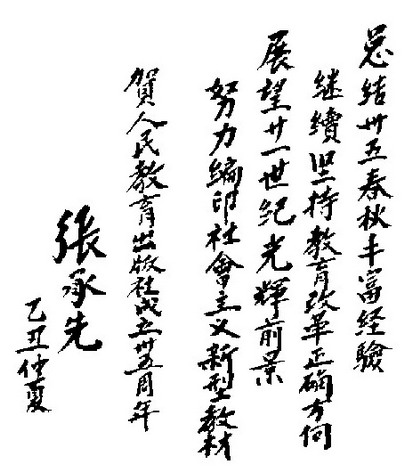 总结卅五春秋丰富经驗
继續坚持教育改革正确方向
展望廿一世纪光輝前景
努力編印社會主义新型教材
賀人民教育出版社成立卅五周年
張承先
乙丑仲夏